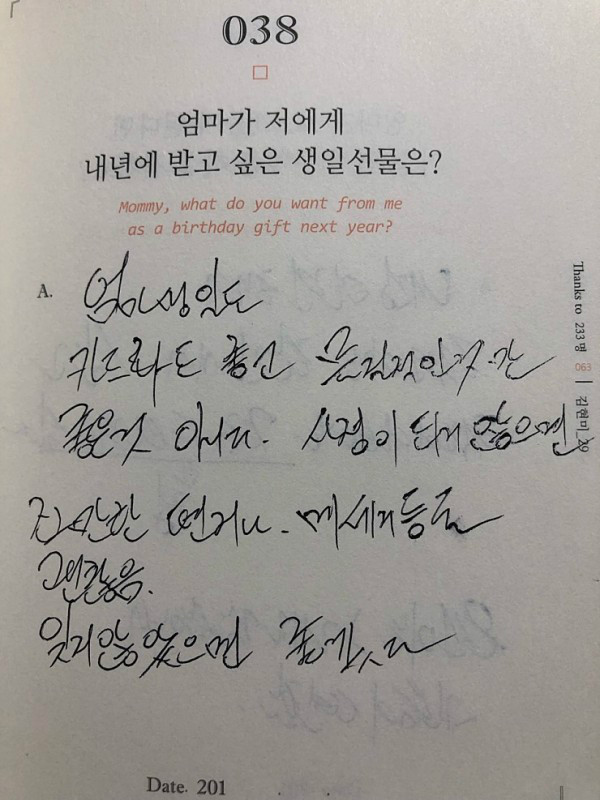 038
엄마가 저에게
내년에 받고 싶은 생일선물은?
Mommy, what do you want from me
as a birthday gift next year?
A. 엄마생일도
카드라도 좋고 물질적인것만
좋은것 아니다. 사정이 되지 않으면
간단한 메세지등도
괜찮음.
잊지않았으면 좋겠다
Thanks to 233명 063 | 김현미_39
Date. 201 . .